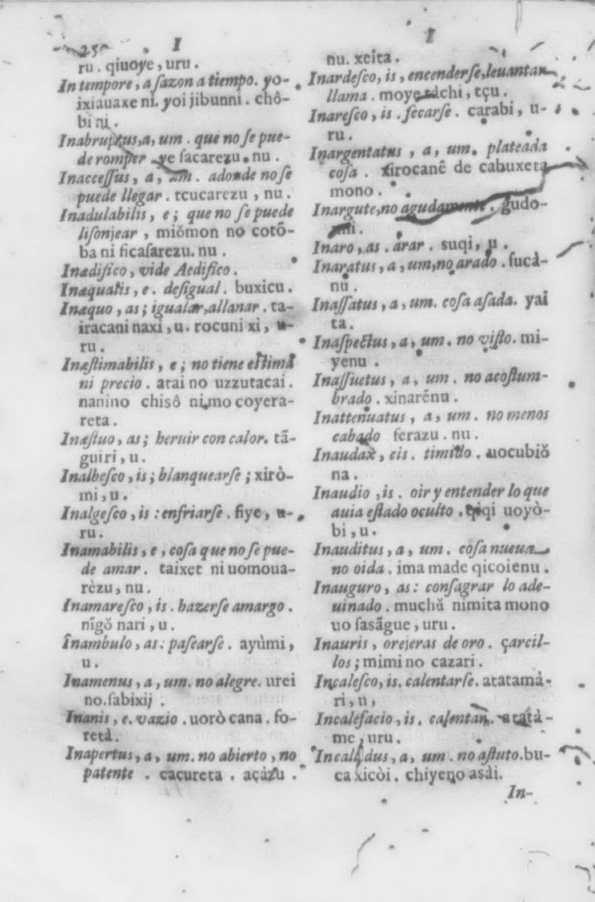 25 I
ru. qiuoye, uru.
In tempore, a sazon a tiempo. yo-
ixiauaxe ni. yoi jibunni. chô-
bi ni.
Inabruptus, a, um. que no se pue-
de romper. ye sacarezu. nu.
Inaccessus, a, um. adonde no se
puede llegar. tcucarezu, nu.
Inadulabilis, e; que no se puede
lisonjear, miŏmon no cotō-
ba ni ficasarezu. nu.
Inædifico, vide Aedifico.
Inæqualis, e. desigual. buxicu.
Inæquo, as; igualar, allanar. ta-
iracani naxi, u. rocuni xi, u-
ru.
Inæstimabilis, e; no tiene estima
ni precio. atai no uzzutacai.
nanino chisô ni mo coyera-
reta.
Inæstuo, as; heruir con calor. tã-
guiri, u.
Inalbesco, is; blanquearse; xirò-
mi, u.
Inalgesco, is: enfriarse. fiye, u-
ru.
Inamabilis, e, cosa que no se pue-
de amar. taixet ni uomoua-
rèzu, nu.
Inamaresco, is. hazerse amargo.
nĩgŏ nari, u.
Înambulo, as: pasearse. ayùmi,
u.
Inamenus, a, um. no alegre. urei
no. sabixij.
Inanis, e. vazio. uorò cana. fo-
retà.
Inapertus, a, um. no abierto, no
patente. cacureta. açàzu.
I
nu. xeita.
Inardesco, is, encenderse, leuantar
llama. moye tàchi, tçu.
Inaresco, is. secarse. carabi, u-
ru.
Inargentatus, a, um. plateada
cosa. xirocanê de cabuxeta
mono.
Inargute, no agudamente. gudo-
ni.
Inaro, as. arar. suqi, u.
Inaratus, a, um, no arado. sucà-
nu.
Inassatus, a, um. cosa asada. yai
ta.
Inaspectus, a, um. no visto. mi-
yenu.
Inassuetus, a, um. no acostum-
brado. xinarênu.
Inattenuatus, a, um. no menos
cabado ferazu. nu.
Inaudax, cis. timido. uocubiŏ
na.
Inaudio, is. oir y entender lo que
auia estado oculto. qiqi uoyò-
bi, u.
Inauditus, a, um. cosa nueua
no oida. ima made qicoienu.
Inauguro, as: consagrar lo ade-
uinado. muchã nimita mono
uo sasãgue, uru.
Inauris, orejeras de oro. çarcil-
los; mimi no cazari.
Incalesco, is. calentarse. atatamà-
ri, u,
Incalefacio, is. calentar. atatà-
me, uru.
Incalidus, a, um. no astuto. bu-
ca xicòi. chiyeno asài.
In-